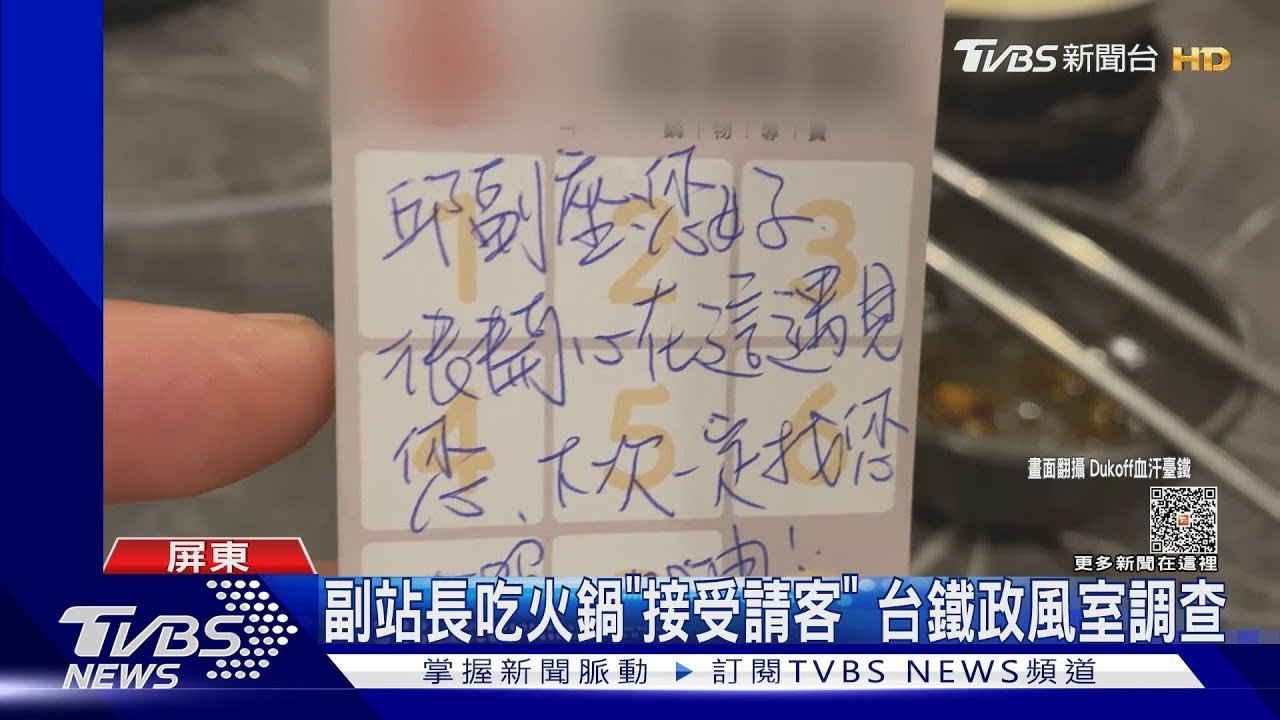 TVBS新聞台 HD
鍋 物 專 賣
1 2 3
4 5 6
邱副座:您好
很開心在這遇見
您、下次一定找您
畫面翻攝 Dukoff血汗臺鐵
更多新聞在這裡
屏東
TVBS NEWS
副站長吃火鍋"接受請客" 台鐵政風室調查
掌握新聞脈動 ▶ 訂閱TVBS NEWS頻道